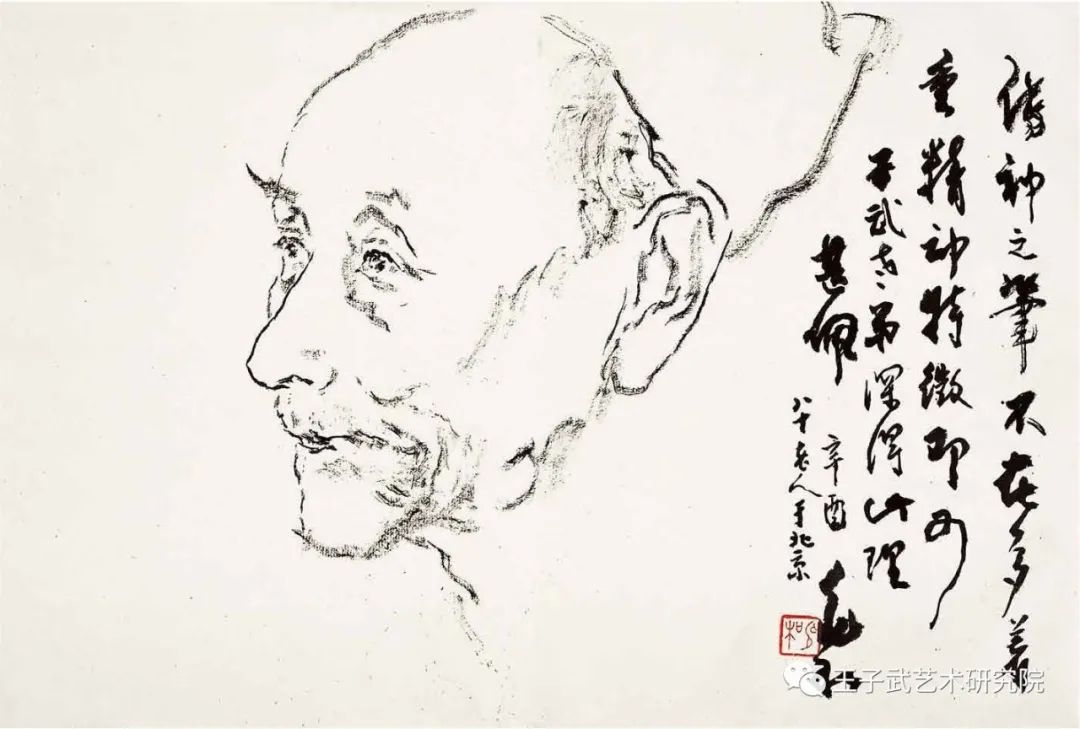 傳神之筆不在多着
重精神特徵即可
子武老弟深得此理
甚佩
辛酉
八十老人于北京
王子武艺术研究院